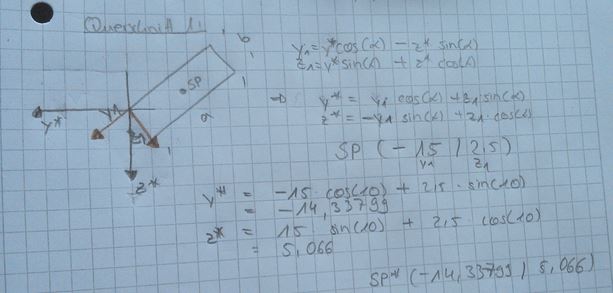 Querschnitt 1:
b
y1 = y* cos(α) - z* sin(α)
z1 = y* sin(α) + z* cos(α)
SP
a
y1
y*
z1
z*
=> y* = y1 cos(α) + z1 sin(α)
z* = -y1 sin(α) + z1 cos(α)
SP (-15 | 2,5)
y1 z1
y* = -15 · cos(10) + 2,5 · sin(10)
= -14,33799
z* = 15 sin(10) + 2,5 cos(10)
= 5,066
SP* (-14,33799 | 5,066)